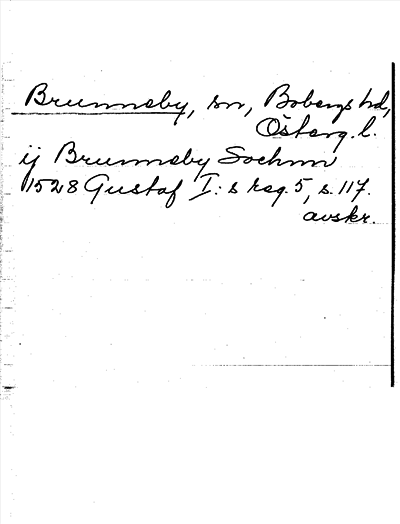 Brunneby, sn, Bobergs hd,
Österg. l.
ij Brunneby Sochnn
1528 Gustaf I:s reg. 5, s. 117.
avskr.